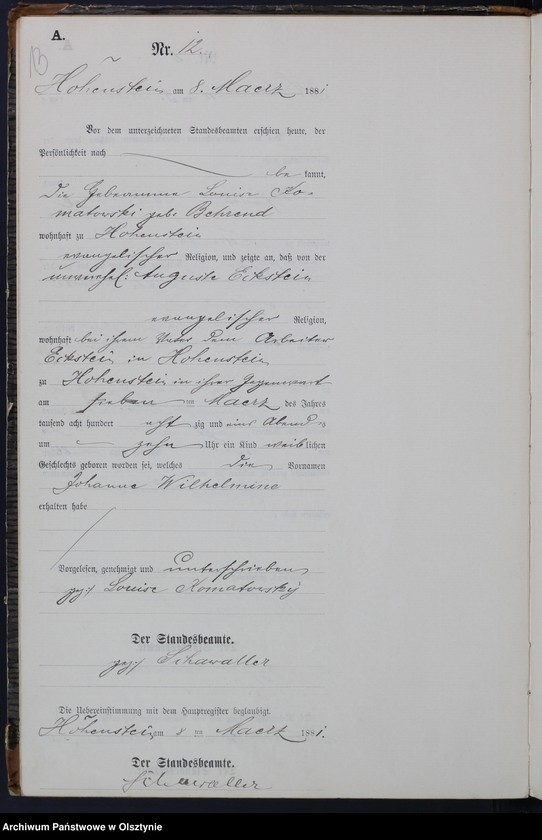 A.
13
Nr. 12.
Hohenstein am 8. Maerz 1881
Vor dem unterzeichneten Standesbeamten erschien heute, der
Persönlichkeit nach
bekannt,
die Hebeamme Louise Ko-
matowski geb. Behrend
wohnhaft zu Hohenstein
evangelischer Religion, und zeigte an, daß von der
unverehel. Auguste Eckstein
evangelischer Religion,
wohnhaft bei ihrem Vater dem Arbeiter
Eckstein in Hohenstein
zu Hohenstein in ihrer Gegenwart
am sieben ten Maerz des Jahres
tausend acht hundert achtzig und eins Abends
um zehn Uhr ein Kind weiblichen
Geschlechts geboren worden sei, welches die Vornamen
Johanne Wilhelmine
erhalten habe
Vorgelesen, genehmigt und unterschrieben
gez. Louise Komatovsky
Der Standesbeamte.
gez. Schawaller
Die Uebereinstimmung mit dem Hauptregister beglaubigt.
Hohenstein, am 8 ten Maerz 1881.
Der Standesbeamte.
Schawaller
Archiwum Państwowe w Olsztynie